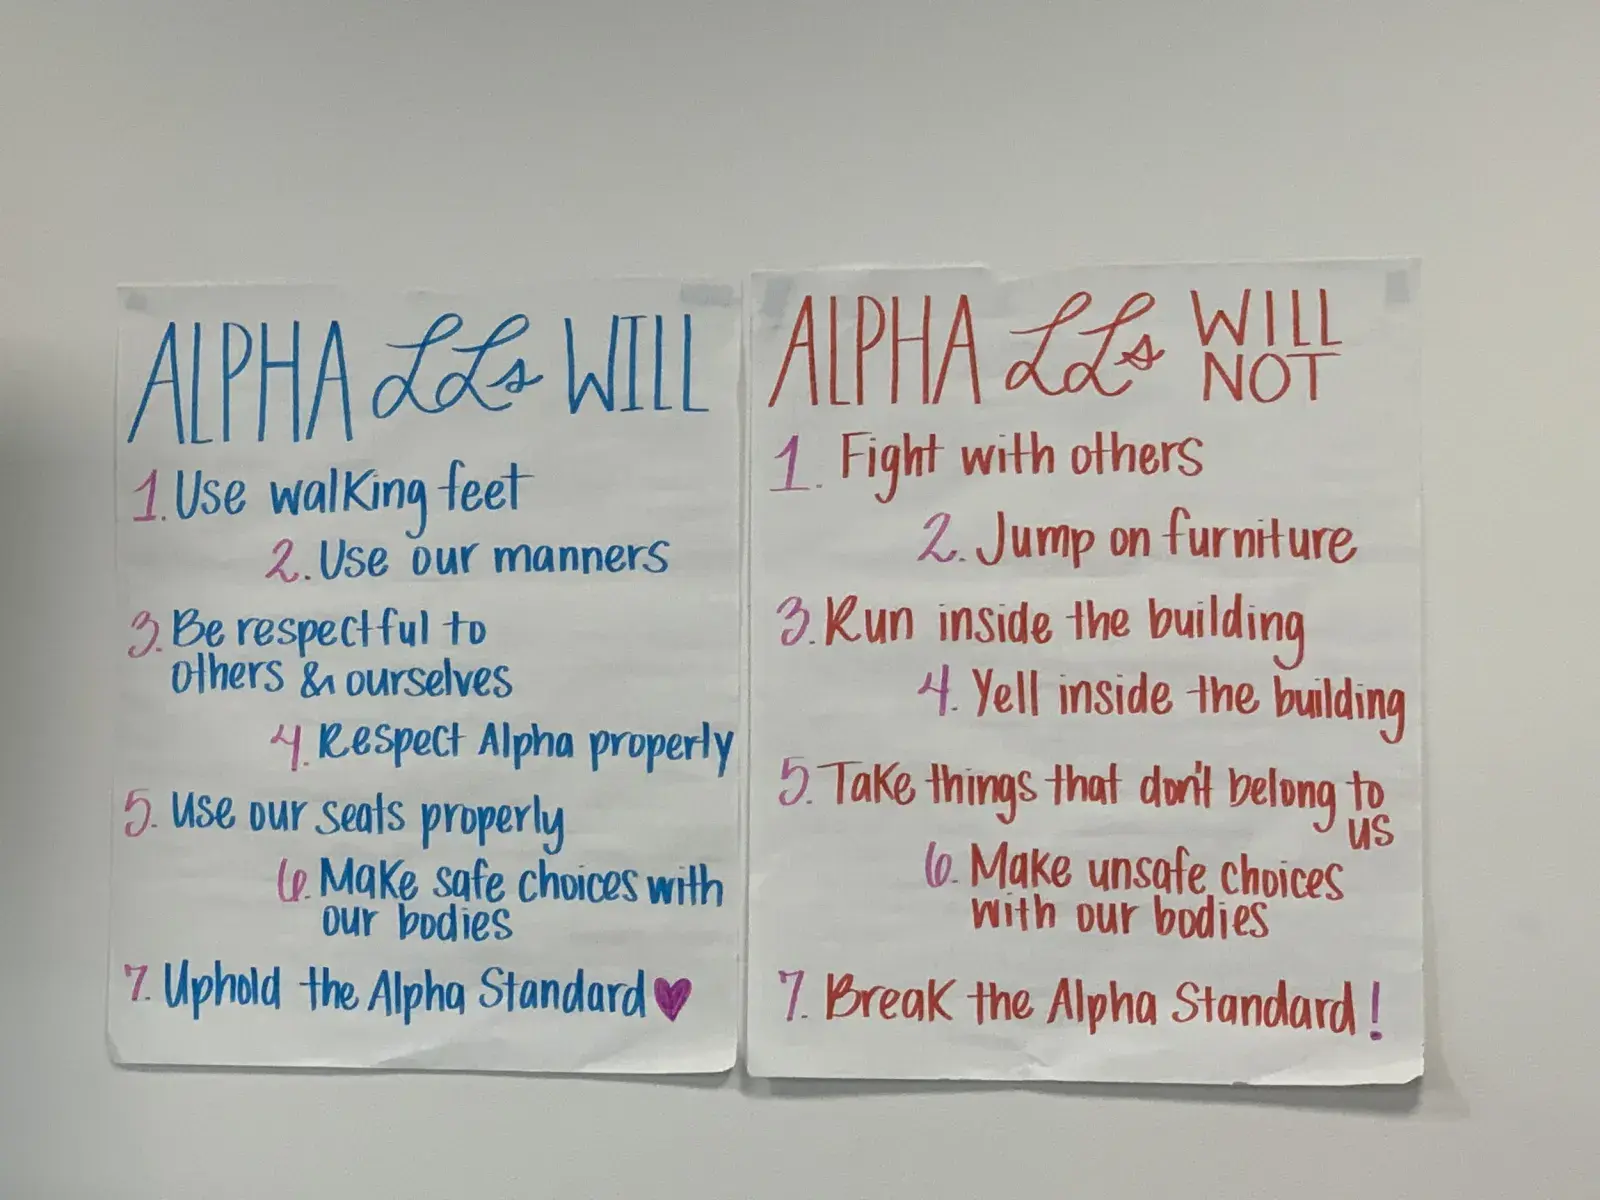 ALPHA LLs WILL
1. Use walking feet
2. Use our manners
3. Be respectful to
others & ourselves
4. Respect Alpha properly
5. Use our seats properly
6. Make safe choices with
our bodies
7. Uphold the Alpha Standard
ALPHA LLs WILL
NOT
1. Fight with others
2. Jump on furniture
3. Run inside the building
4. Yell inside the building
5. Take things that don't belong to
us
6. Make unsafe choices
with our bodies
7. Break the Alpha Standard!